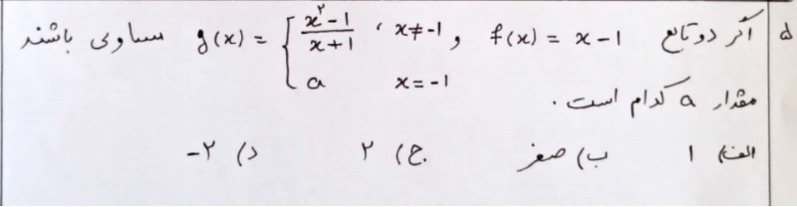 ۵ اگر دو تابع f(x) = x - 1 و g(x) = { (x² - 1)/(x + 1) ، x ≠ -1 مساوی باشند
a x = -1
مقدار a کدام است.
الف) ۱ ب) صفر ج) ۲ د) ۲-